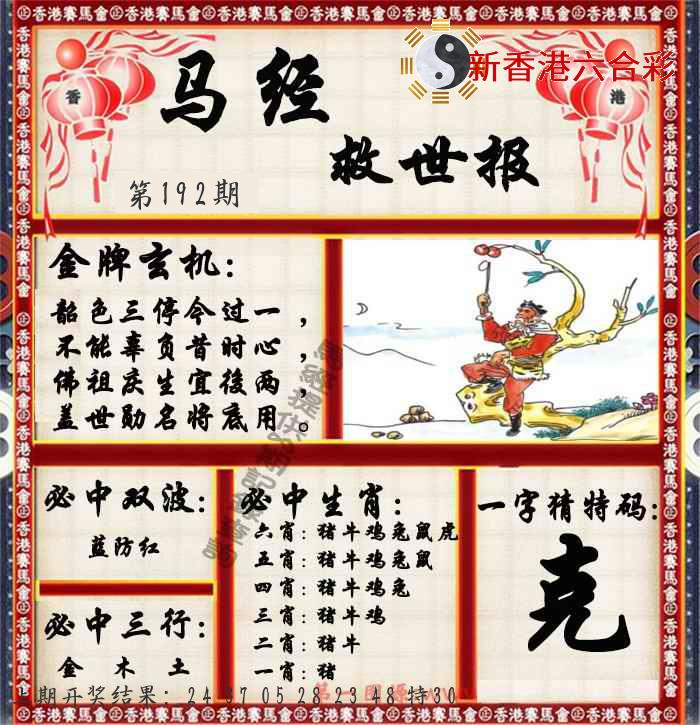 新香港六合彩
香 港
马经
救世报
第192期
金牌玄机：
韶色三停今过一，
不能辜负昔时心，
佛祖庆生宜後两，
盖世勋名将底用。
必中双波：
蓝防红
必中三行：
金 木 土
必中生肖：
六肖：猪牛鸡兔鼠虎
五肖：猪牛鸡兔鼠
四肖：猪牛鸡兔
三肖：猪牛鸡
二肖：猪牛
一肖：猪
一字猜特码：
克
期开奖结果：24 37 05 28 23 48 特30
香港賽馬會